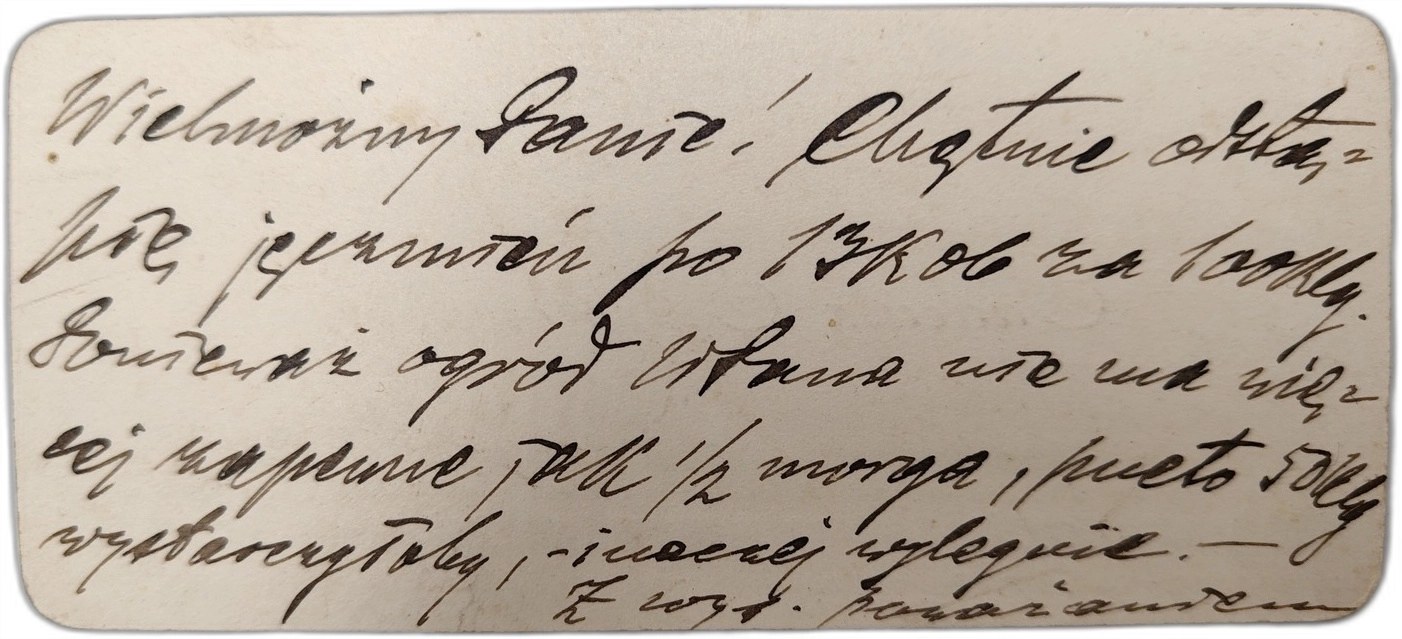 Wielmożny Panie! Chętnie odstą=
pię jęczmień po 13 Kob za 100 Klg.
Ponieważ ogród WPana nie ma wię=
cej zapewne jak 1/2 morga, przeto 50 Klg
wystarczyłoby, - inaczej wylegnie. —
Z wys. poważaniem